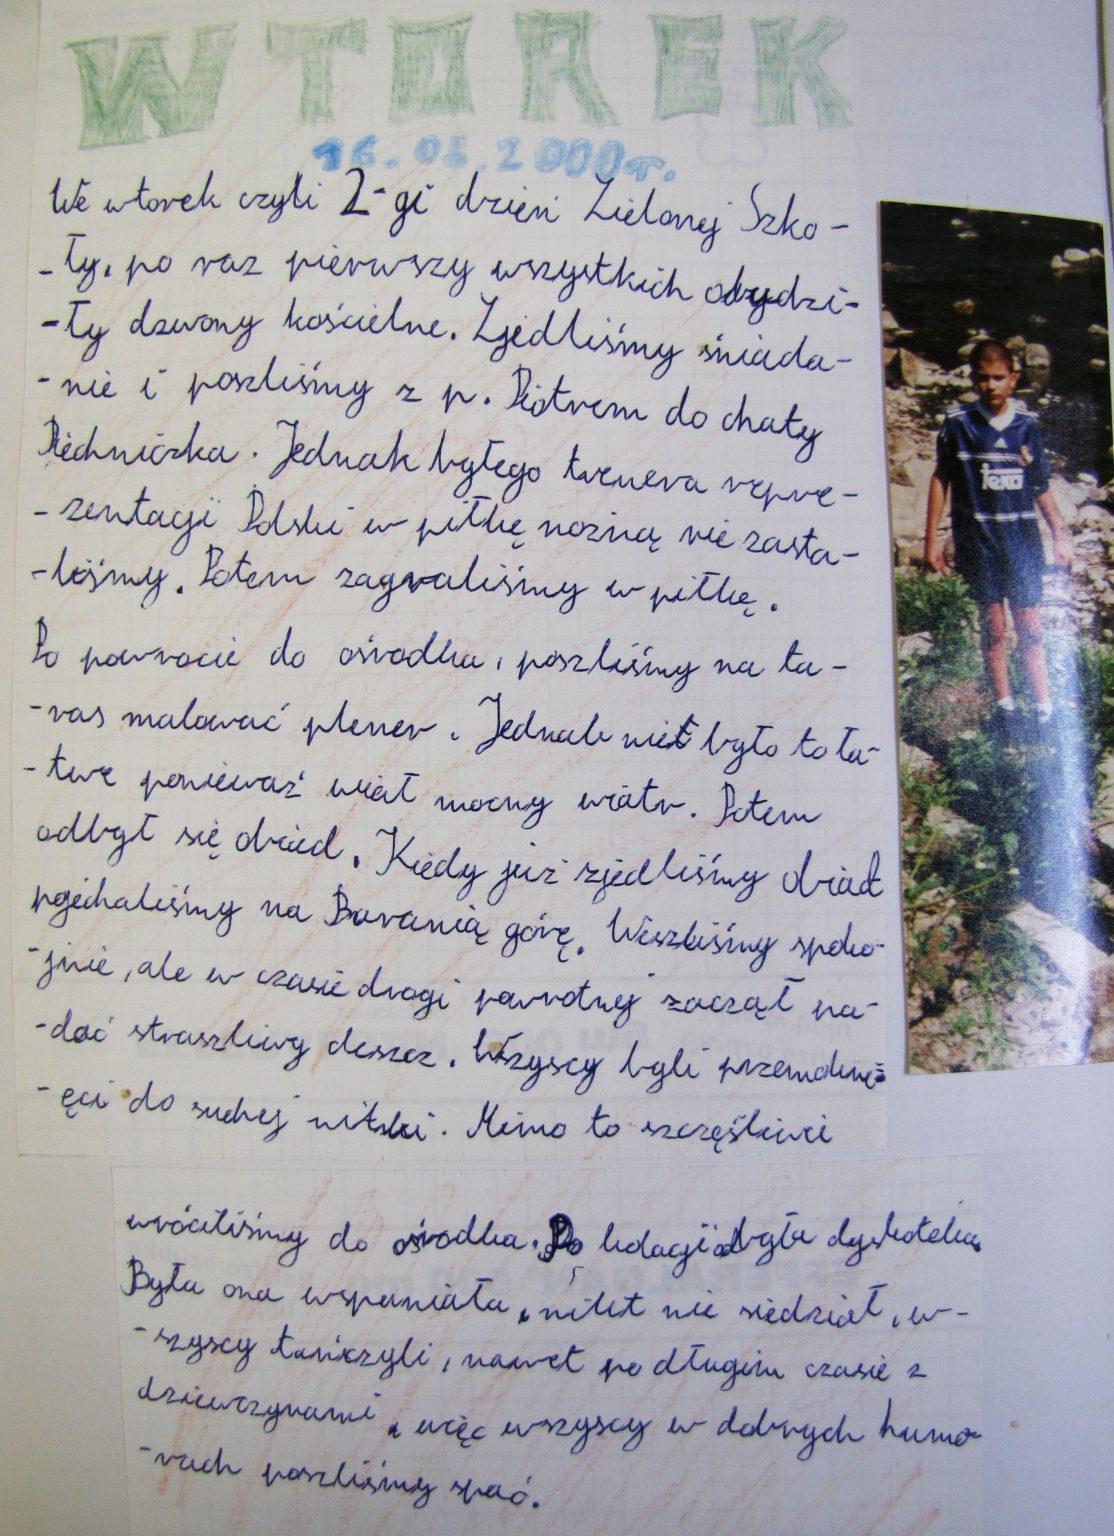 WTOREK
16.05.2000r.
We wtorek czyli 2-gi dzień Zielonej Szko-
-ły, po raz pierwszy wszystkich obudzi-
-ły dzwony kościelne. Zjedliśmy śniada-
-nie i poszliśmy z p. Piotrem do chaty
Piechniczka. Jednak byłego trenera repre-
-zentacji Polski w piłkę nożną nie zasta-
-liśmy. Potem zagraliśmy w piłkę.
Po powrocie do ośrodka, poszliśmy na ta-
-ras malować plener. Jednak nie było to ła-
-twe ponieważ wiał mocny wiatr. Potem
odbył się obiad. Kiedy już zjedliśmy obiad
pojechaliśmy na Baranią górę. Weszliśmy spoko-
-jnie, ale w czasie drogi powrotnej zaczął pa-
-dać straszliwy deszcz. Wszyscy byli przemokni-
-ęci do suchej nitki. Mimo to szczęśliwi
wróciliśmy do ośrodka. Po kolacji była dyskoteka.
Była ona wspaniała, nikt nie siedział, w-
-szyscy tańczyli, nawet po długim czasie z
dziewczynami, więc wszyscy w dobrych humo-
-rach poszliśmy spać.
teka